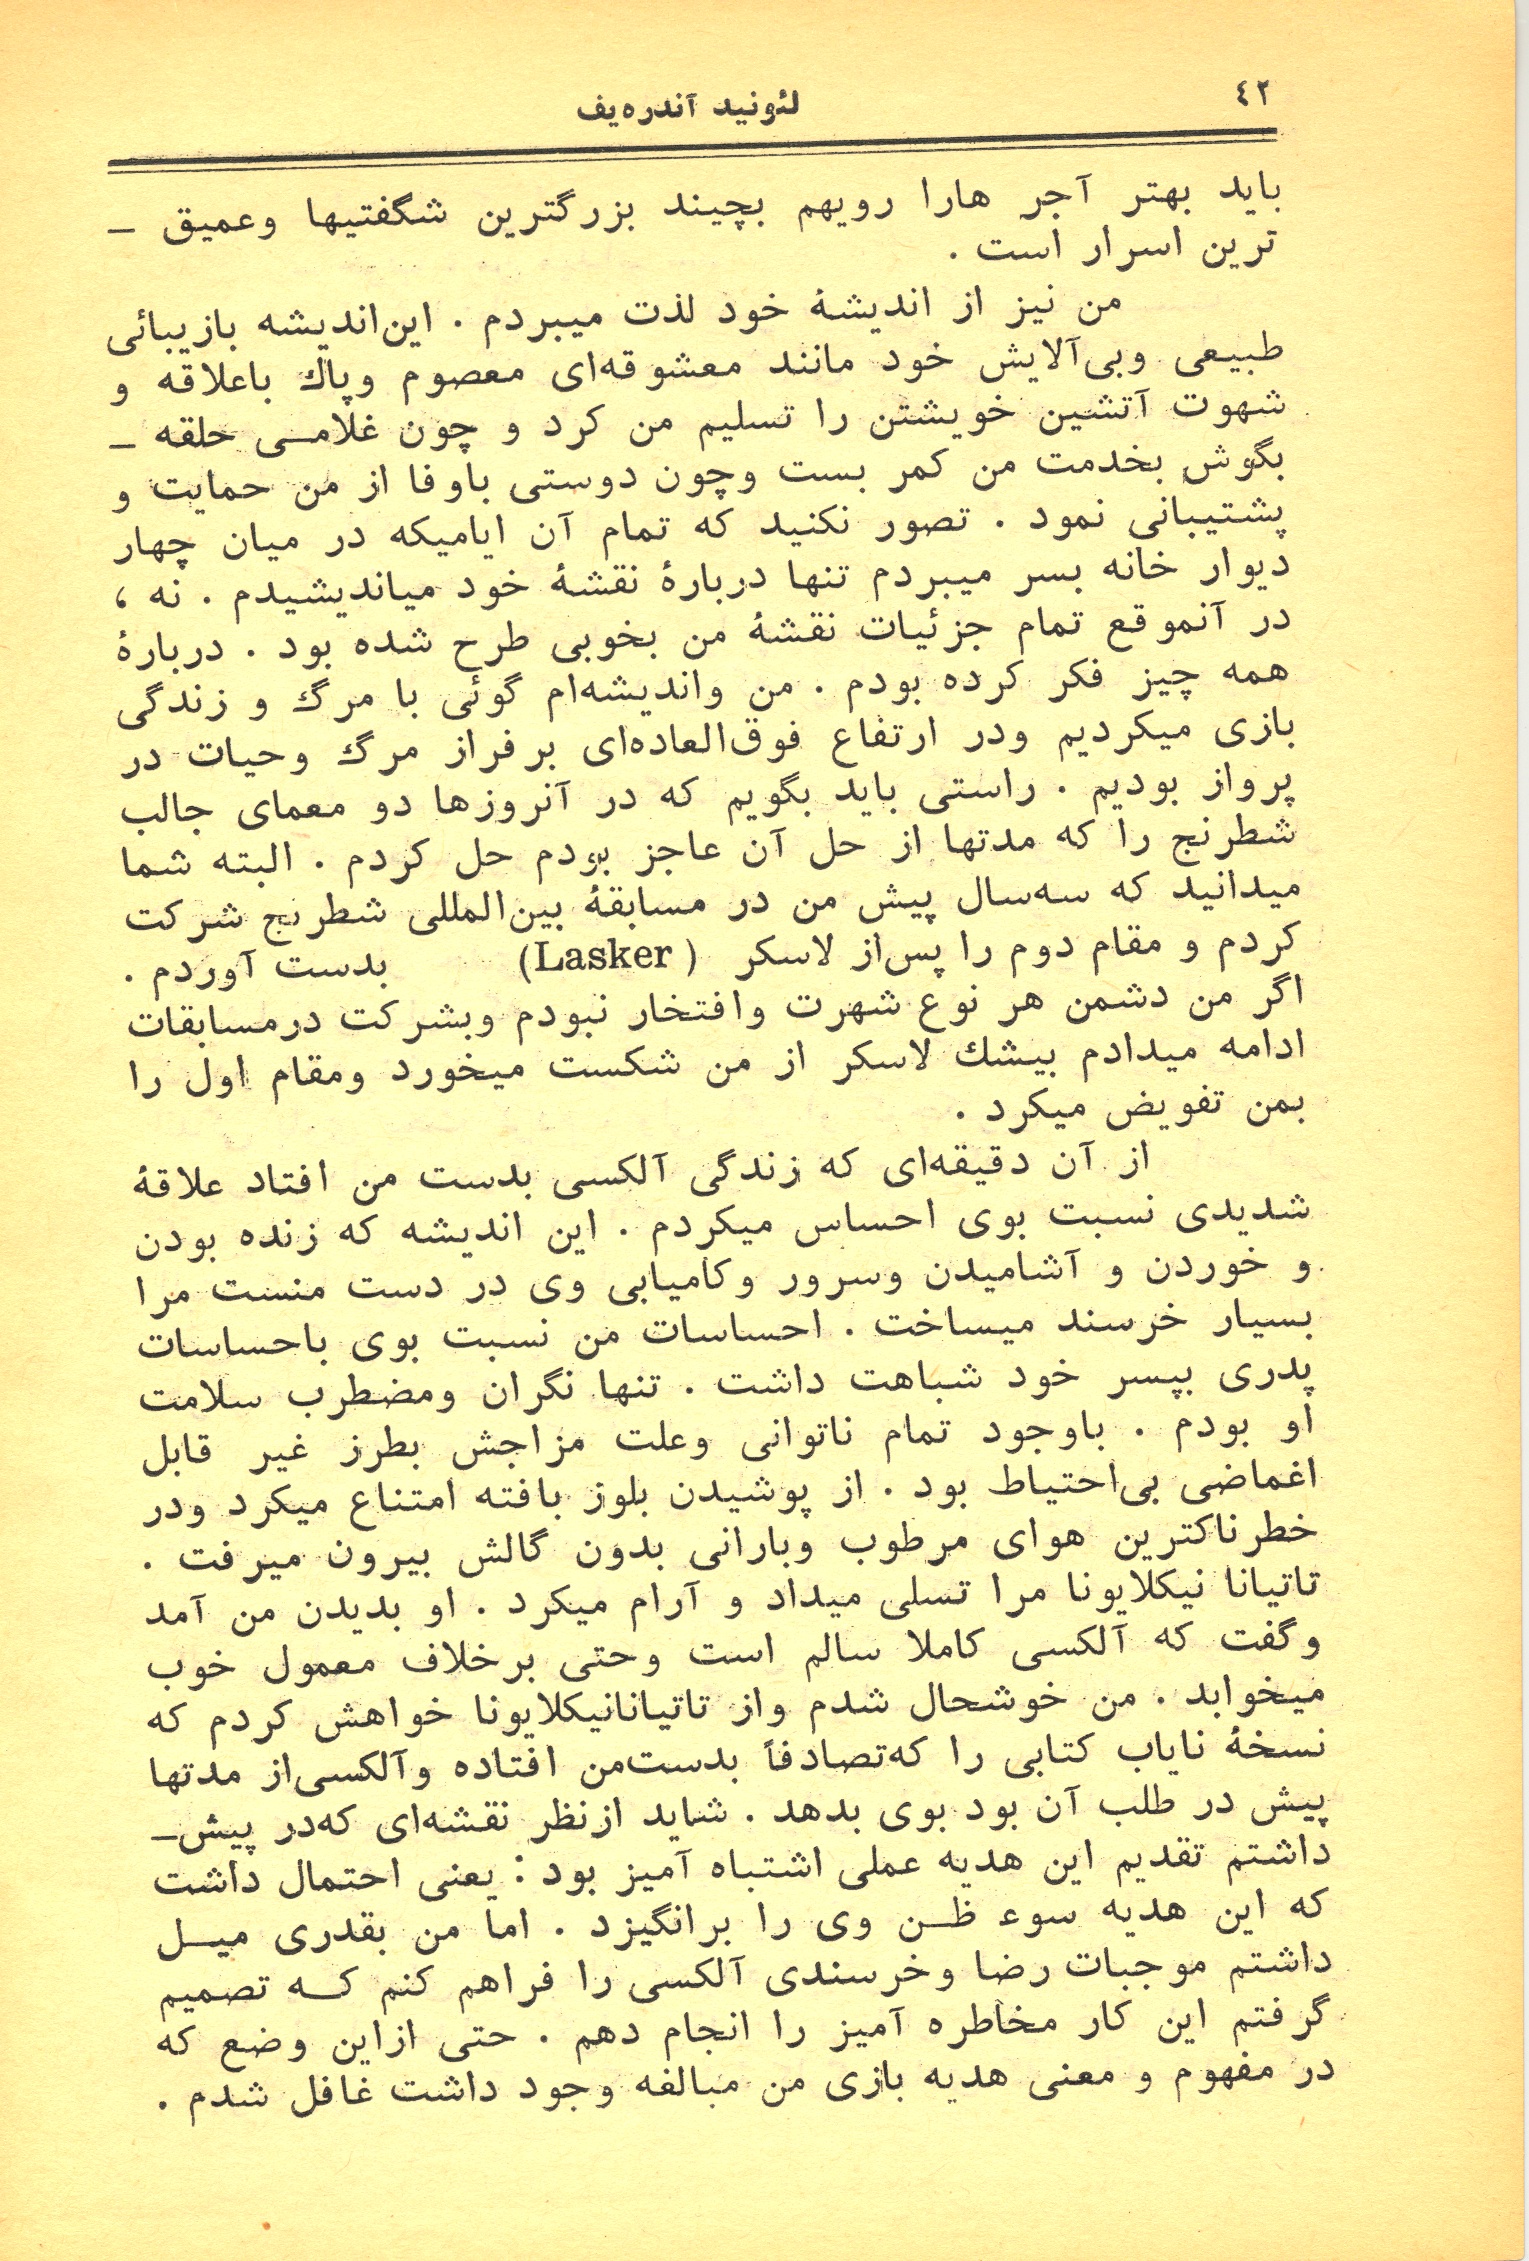 ۴۲
لئونید آندره‌یف
باید بهتر آجر هارا رویهم بچیند بزرگترین شگفتیها وعمیق –
ترین اسرار است .
من نیز از اندیشهٔ خود لذت میبردم . این‌اندیشه بازیبائی
طبیعی وبی‌آلایش خود مانند معشوقه‌ای معصوم وپاك باعلاقه و
شهوت آتشین خویشتن را تسلیم من کرد و چون غلامی حلقه –
بگوش بخدمت من کمر بست وچون دوستی باوفا از من حمایت و
پشتیبانی نمود . تصور نکنید که تمام آن ایامیکه در میان چهار
دیوار خانه بسر میبردم تنها دربارهٔ نقشهٔ خود میاندیشیدم . نه ،
در آنموقع تمام جزئیات نقشهٔ من بخوبی طرح شده بود . دربارهٔ
همه چیز فکر کرده بودم . من واندیشه‌ام گوئی با مرگ و زندگی
بازی میکردیم ودر ارتفاع فوق‌العاده‌ای برفراز مرگ وحیات در
پرواز بودیم . راستی باید بگویم که در آنروزها دو معمای جالب
شطرنج را که مدتها از حل آن عاجز بودم حل کردم . البته شما
میدانید که سه‌سال پیش من در مسابقهٔ بین‌المللی شطرنج شرکت
کردم و مقام دوم را پس‌از لاسکر (Lasker) بدست آوردم .
اگر من دشمن هر نوع شهرت وافتخار نبودم وبشرکت درمسابقات
ادامه میدادم بیشك لاسکر از من شکست میخورد ومقام اول را
بمن تفویض میکرد .
از آن دقیقه‌ای که زندگی آلکسی بدست من افتاد علاقهٔ
شدیدی نسبت بوی احساس میکردم . این اندیشه که زنده بودن
و خوردن و آشامیدن وسرور وکامیابی وی در دست منست مرا
بسیار خرسند میساخت . احساسات من نسبت بوی باحساسات
پدری بپسر خود شباهت داشت . تنها نگران ومضطرب سلامت
او بودم . باوجود تمام ناتوانی وعلت مزاجش بطرز غیر قابل
اغماضی بی‌احتیاط بود . از پوشیدن بلوز بافته امتناع میکرد ودر
خطرناکترین هوای مرطوب وبارانی بدون گالش بیرون میرفت .
تاتیانا نیکلایونا مرا تسلی میداد و آرام میکرد . او بدیدن من آمد
وگفت که آلکسی کاملا سالم است وحتی برخلاف معمول خوب
میخوابد . من خوشحال شدم واز تاتیانانیکلایونا خواهش کردم که
نسخهٔ نایاب کتابی را که‌تصادفاً بدست‌من افتاده وآلکسی‌از مدتها
پیش در طلب آن بود بوی بدهد . شاید ازنظر نقشه‌ای که‌در پیش–
داشتم تقدیم این هدیه عملی اشتباه آمیز بود : یعنی احتمال داشت
که این هدیه سوء ظن وی را برانگیزد . اما من بقدری میل
داشتم موجبات رضا وخرسندی آلکسی را فراهم کنم که تصمیم
گرفتم این کار مخاطره آمیز را انجام دهم . حتی ازاین وضع که
در مفهوم و معنی هدیه بازی من مبالغه وجود داشت غافل شدم .